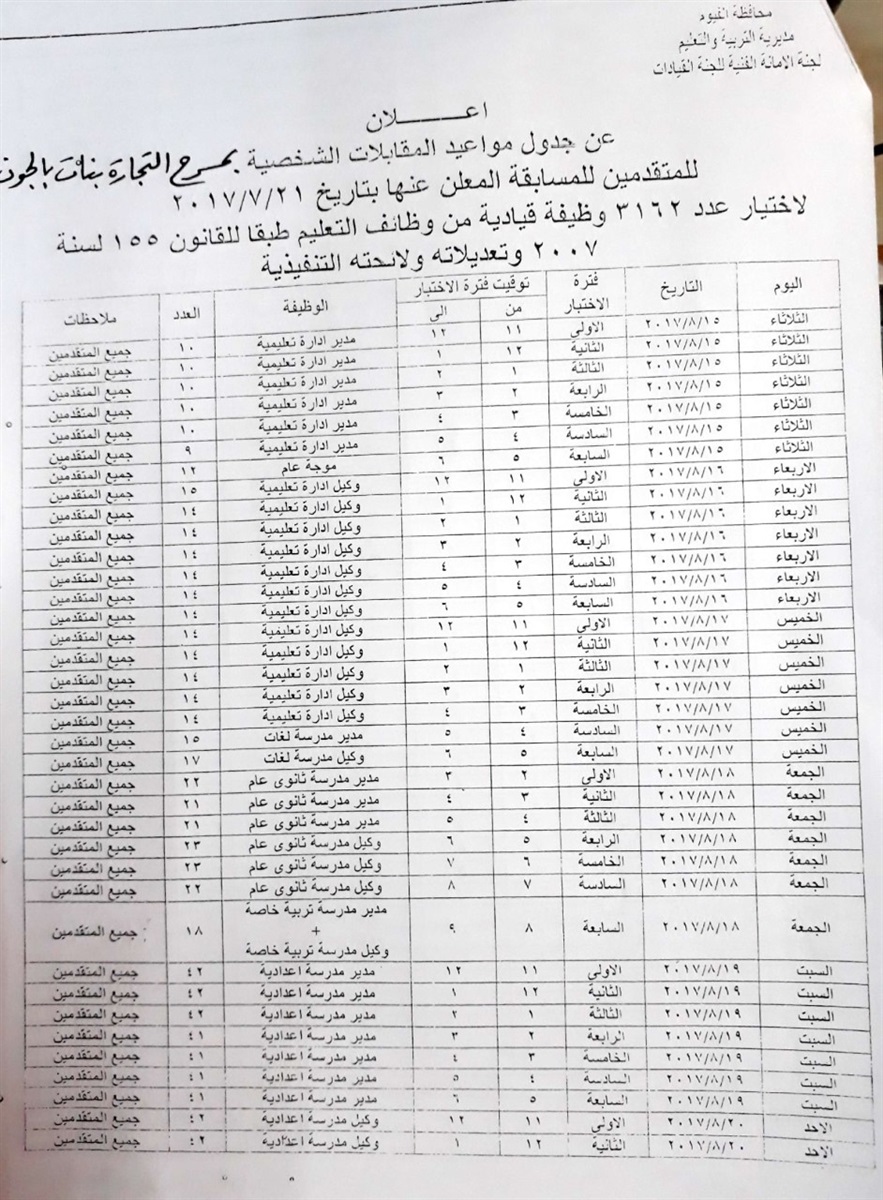 محافظة الفيوم
مديرية التربية والتعليم
لجنة الامانة الفنية للجنة القيادات
اعـــــــلان
عن جدول مواعيد المقابلات الشخصية بمسرح التجارة بنات بالجون
للمتقدمين للمسابقة المعلن عنها بتاريخ ٢٠١٧/٧/٢١
لاختيار عدد ٣١٦٢ وظيفة قيادية من وظائف التعليم طبقا للقانون ١٥٥ لسنة
٢٠٠٧ وتعديلاته ولائحته التنفيذية
اليوم التاريخ فترة الاختبار توقيت فترة الاختبار الوظيفة العدد ملاحظات
من الى
الثلاثاء ٢٠١٧/٨/١٥ الاولى ١١ ١٢ مدير ادارة تعليمية ١٠ جميع المتقدمين
الثلاثاء ٢٠١٧/٨/١٥ الثانية ١٢ ١ مدير ادارة تعليمية ١٠ جميع المتقدمين
الثلاثاء ٢٠١٧/٨/١٥ الثالثة ١ ٢ مدير ادارة تعليمية ١٠ جميع المتقدمين
الثلاثاء ٢٠١٧/٨/١٥ الرابعة ٢ ٣ مدير ادارة تعليمية ١٠ جميع المتقدمين
الثلاثاء ٢٠١٧/٨/١٥ الخامسة ٣ ٤ مدير ادارة تعليمية ١٠ جميع المتقدمين
الثلاثاء ٢٠١٧/٨/١٥ السادسة ٤ ٥ مدير ادارة تعليمية ٩ جميع المتقدمين
الثلاثاء ٢٠١٧/٨/١٥ السابعة ٥ ٦ موجة عام ١٢ جميع المتقدمين
الاربعاء ٢٠١٧/٨/١٦ الاولى ١١ ١٢ وكيل ادارة تعليمية ١٥ جميع المتقدمين
الاربعاء ٢٠١٧/٨/١٦ الثانية ١٢ ١ وكيل ادارة تعليمية ١٤ جميع المتقدمين
الاربعاء ٢٠١٧/٨/١٦ الثالثة ١ ٢ وكيل ادارة تعليمية ١٤ جميع المتقدمين
الاربعاء ٢٠١٧/٨/١٦ الرابعة ٢ ٣ وكيل ادارة تعليمية ١٤ جميع المتقدمين
الاربعاء ٢٠١٧/٨/١٦ الخامسة ٣ ٤ وكيل ادارة تعليمية ١٤ جميع المتقدمين
الاربعاء ٢٠١٧/٨/١٦ السادسة ٤ ٥ وكيل ادارة تعليمية ١٤ جميع المتقدمين
الاربعاء ٢٠١٧/٨/١٦ السابعة ٥ ٦ وكيل ادارة تعليمية ١٤ جميع المتقدمين
الخميس ٢٠١٧/٨/١٧ الاولى ١١ ١٢ وكيل ادارة تعليمية ١٤ جميع المتقدمين
الخميس ٢٠١٧/٨/١٧ الثانية ١٢ ١ وكيل ادارة تعليمية ١٤ جميع المتقدمين
الخميس ٢٠١٧/٨/١٧ الثالثة ١ ٢ وكيل ادارة تعليمية ١٤ جميع المتقدمين
الخميس ٢٠١٧/٨/١٧ الرابعة ٢ ٣ وكيل ادارة تعليمية ١٤ جميع المتقدمين
الخميس ٢٠١٧/٨/١٧ الخامسة ٣ ٤ وكيل ادارة تعليمية ١٤ جميع المتقدمين
الخميس ٢٠١٧/٨/١٧ السادسة ٤ ٥ مدير مدرسة لغات ١٥ جميع المتقدمين
الخميس ٢٠١٧/٨/١٧ السابعة ٥ ٦ وكيل مدرسة لغات ١٧ جميع المتقدمين
الجمعة ٢٠١٧/٨/١٨ الاولى ٢ ٣ مدير مدرسة ثانوى عام ٢٢ جميع المتقدمين
الجمعة ٢٠١٧/٨/١٨ الثانية ٣ ٤ مدير مدرسة ثانوى عام ٢١ جميع المتقدمين
الجمعة ٢٠١٧/٨/١٨ الثالثة ٤ ٥ مدير مدرسة ثانوى عام ٢١ جميع المتقدمين
الجمعة ٢٠١٧/٨/١٨ الرابعة ٥ ٦ وكيل مدرسة ثانوى عام ٢٣ جميع المتقدمين
الجمعة ٢٠١٧/٨/١٨ الخامسة ٦ ٧ وكيل مدرسة ثانوى عام ٢٣ جميع المتقدمين
الجمعة ٢٠١٧/٨/١٨ السادسة ٧ ٨ وكيل مدرسة ثانوى عام ٢٢ جميع المتقدمين
الجمعة ٢٠١٧/٨/١٨ السابعة ٨ ٩ مدير مدرسة تربية خاصة + وكيل مدرسة تربية خاصة ١٨ جميع المتقدمين
السبت ٢٠١٧/٨/١٩ الاولى ١١ ١٢ مدير مدرسة اعدادية ٤٢ جميع المتقدمين
السبت ٢٠١٧/٨/١٩ الثانية ١٢ ١ مدير مدرسة اعدادية ٤٢ جميع المتقدمين
السبت ٢٠١٧/٨/١٩ الثالثة ١ ٢ مدير مدرسة اعدادية ٤٢ جميع المتقدمين
السبت ٢٠١٧/٨/١٩ الرابعة ٢ ٣ مدير مدرسة اعدادية ٤١ جميع المتقدمين
السبت ٢٠١٧/٨/١٩ الخامسة ٣ ٤ مدير مدرسة اعدادية ٤١ جميع المتقدمين
السبت ٢٠١٧/٨/١٩ السادسة ٤ ٥ مدير مدرسة اعدادية ٤١ جميع المتقدمين
السبت ٢٠١٧/٨/١٩ السابعة ٥ ٦ مدير مدرسة اعدادية ٤١ جميع المتقدمين
الاحد ٢٠١٧/٨/٢٠ الاولى ١١ ١٢ وكيل مدرسة اعدادية ٤٢ جميع المتقدمين
الاحد ٢٠١٧/٨/٢٠ الثانية ١٢ ١ وكيل مدرسة اعدادية ٤٢ جميع المتقدمين